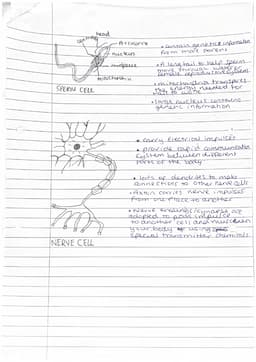 head
Acrosome
nucleus
midpiece
mitochondria
SPERM CELL
• contain genetic information
from male parent
• A long tail to help sperm
move through water or
female reproductive system
• mitochondria transfers
the energy needed for
tail to work
• large nucleus contains
genetic information
• carry electrical impulses
• provide rapid communication
system between different
parts of the body
• lots of dendrites to make
connections to other nerve cells
• Axon carries nerve impulses
from one place to another
• Nerve endings/synapses are
adapted to pass impulses
to another cell and
your body using
special transmitter chemicals
NERVE CELL